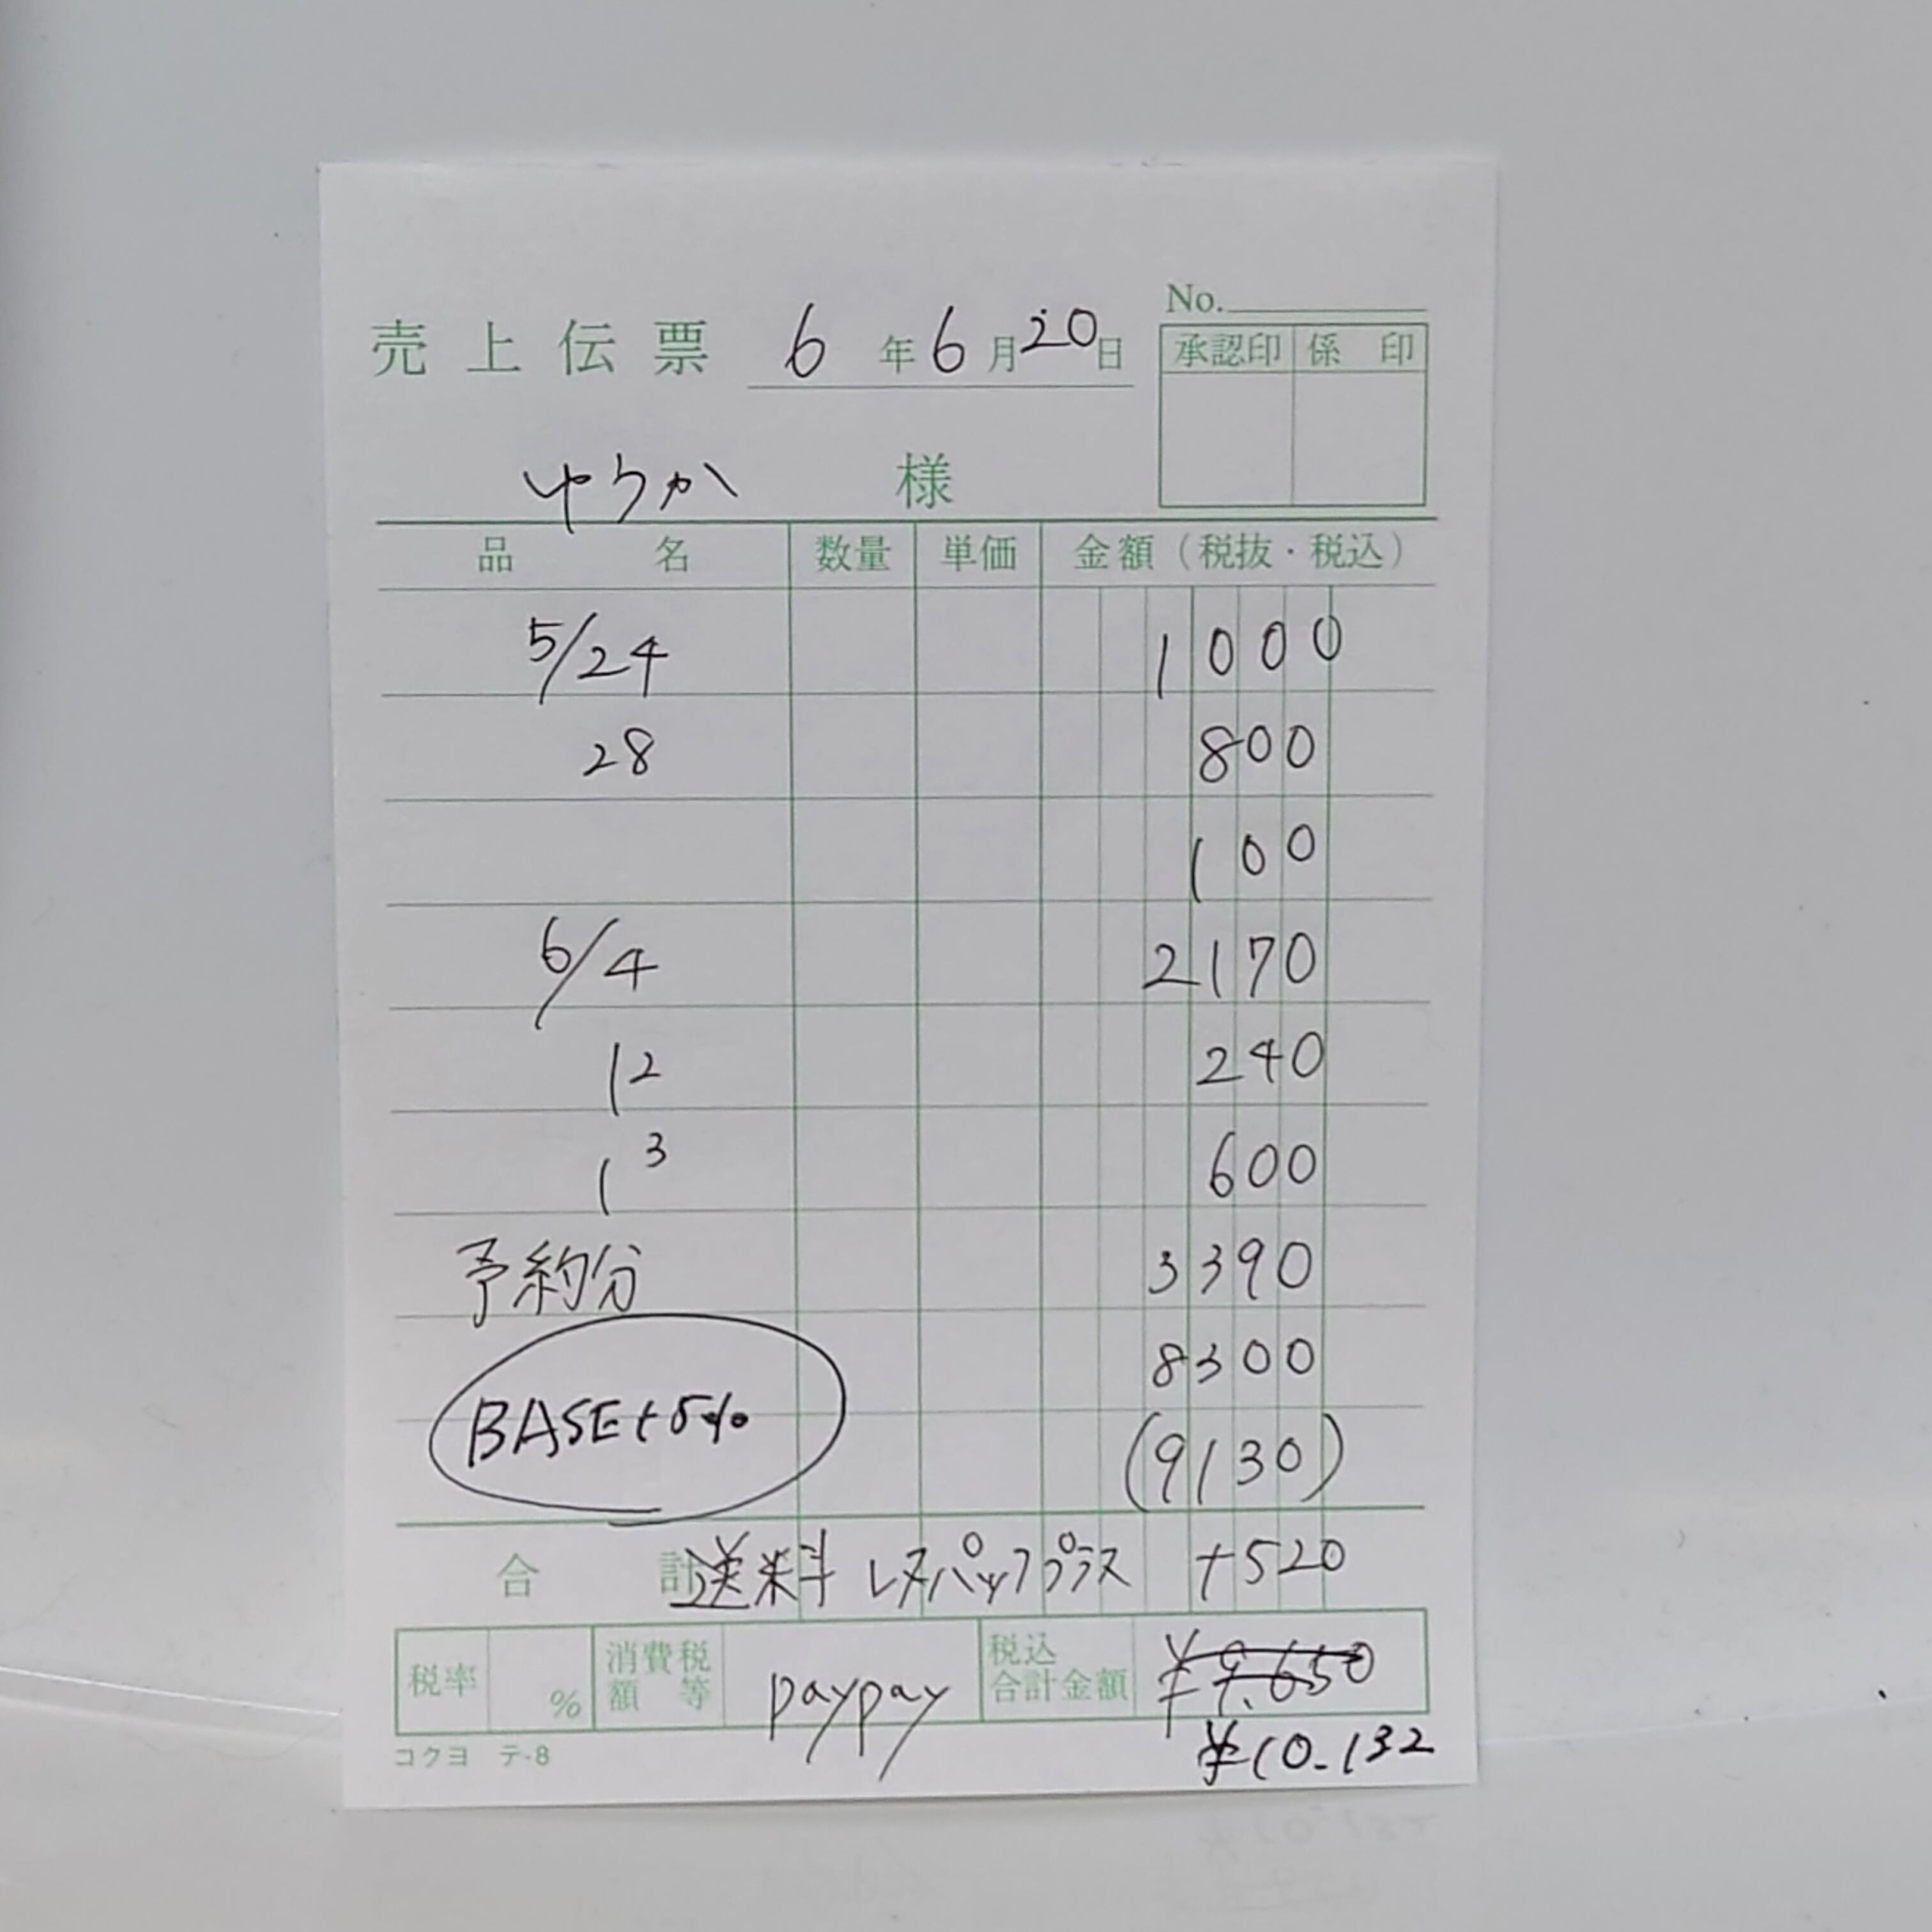 No.
売上伝票 6年6月20日
承認印 係印
ゆりか 様
品名 数量 単価 金額(税抜・税込)
5/24 1000
28 800
100
6/4 2170
12 240
13 600
予約分 3390
8300
BASE+5% (9130)
合計 送料 レターパックプラス +520
税率 % 消費税額等 paypay 税込合計金額 ¥9.650
¥10.132
コクヨ テ-8